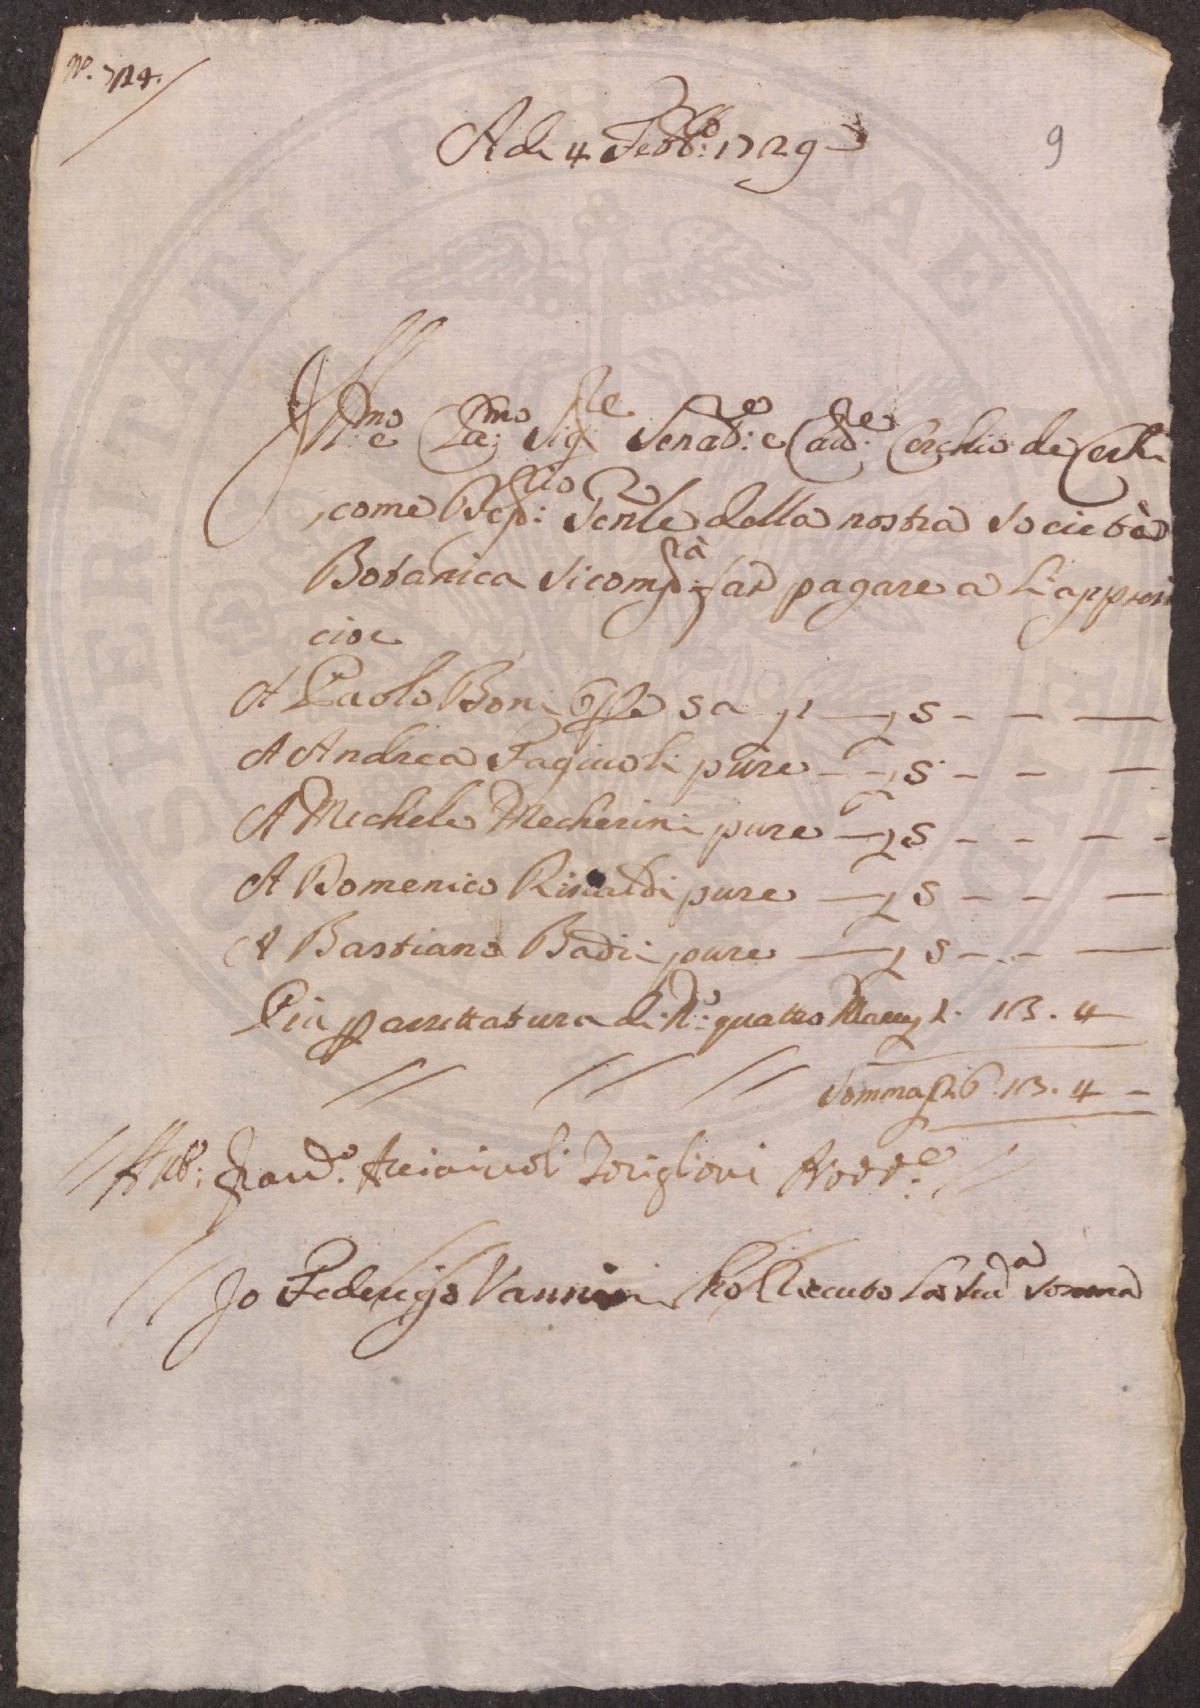 N.° 724.
9
A di 4 Febb:ro 1729
Ill:mo e Cla:mo Sig:re Senat:e e Cav:re Cerchio de Cerchi
come Dep:to Gen:le della nostra Società
Botanica si comp:rà far pagare a li appresso
cioe
A Paolo Boni
A Andrea Fagiuoli pure — 5 — — —
A Michele Mecherini pure — 5 — — —
A Domenico Rinaldi pure — 5 — — —
A Bastiano Badii pure — 5 — — —
Piu p di N:o quattro 1 13. 4
Somma 26. 13. 4 —
Ab: Acciaiuoli Toriglioni Prov:re
Io Federigo Vannini ho riceuto la sud:a somma